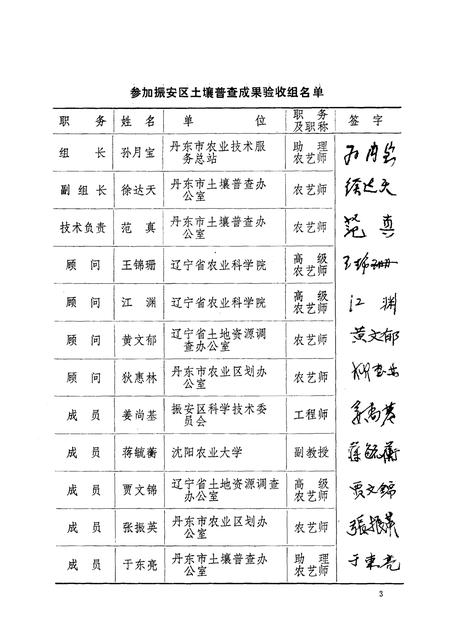 参加振安区土壤普查成果验收组名单
职 务 姓 名 单 位 职 务及职称 签 字
组 长 孙月宝 丹东市农业技术服务总站 助 理农艺师 孙月宝
副组长 徐达天 丹东市土壤普查办公室 农艺师 徐达天
技术负责 范 真 丹东市土壤普查办公室 农艺师 范 真
顾 问 王锦珊 辽宁省农业科学院 高 级农艺师 王锦珊
顾 问 江 渊 辽宁省农业科学院 高 级农艺师 江 渊
顾 问 黄文郁 辽宁省土地资源调查办公室 农艺师 黄文郁
顾 问 狄惠林 丹东市农业区划办公室 农艺师
成 员 姜尚基 振安区科学技术委员会 工程师 姜尚基
成 员 蒋毓衡 沈阳农业大学 副教授 蒋毓衡
成 员 贾文锦 辽宁省土地资源调查办公室 高 级农艺师 贾文锦
成 员 张振英 丹东市农业区划办公室 农艺师 張振英
成 员 于东亮 丹东市土壤普查办公室 助 理农艺师 于東亮
3